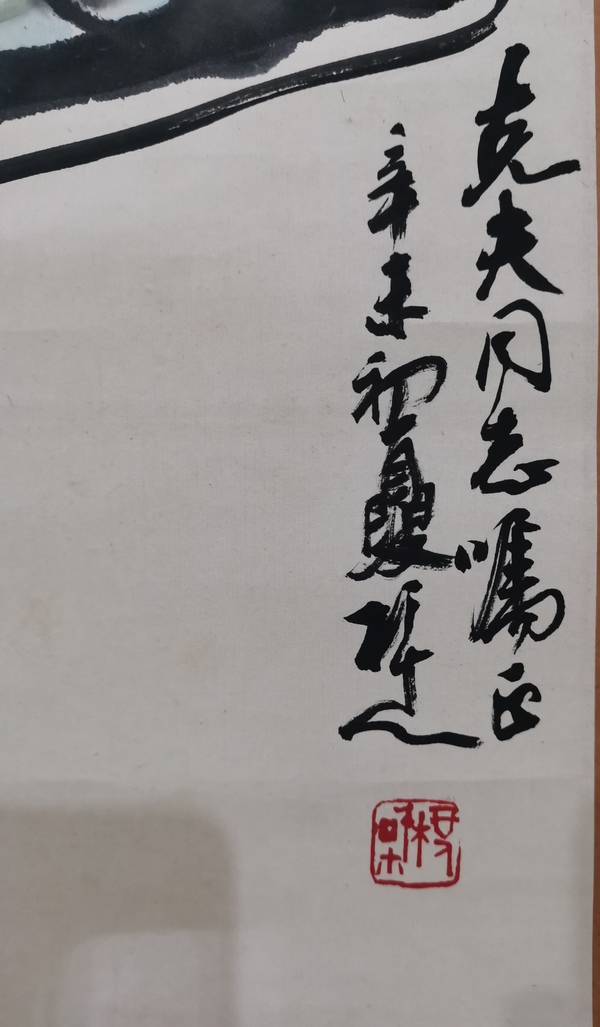 克夫同志嘱正
辛未初夏